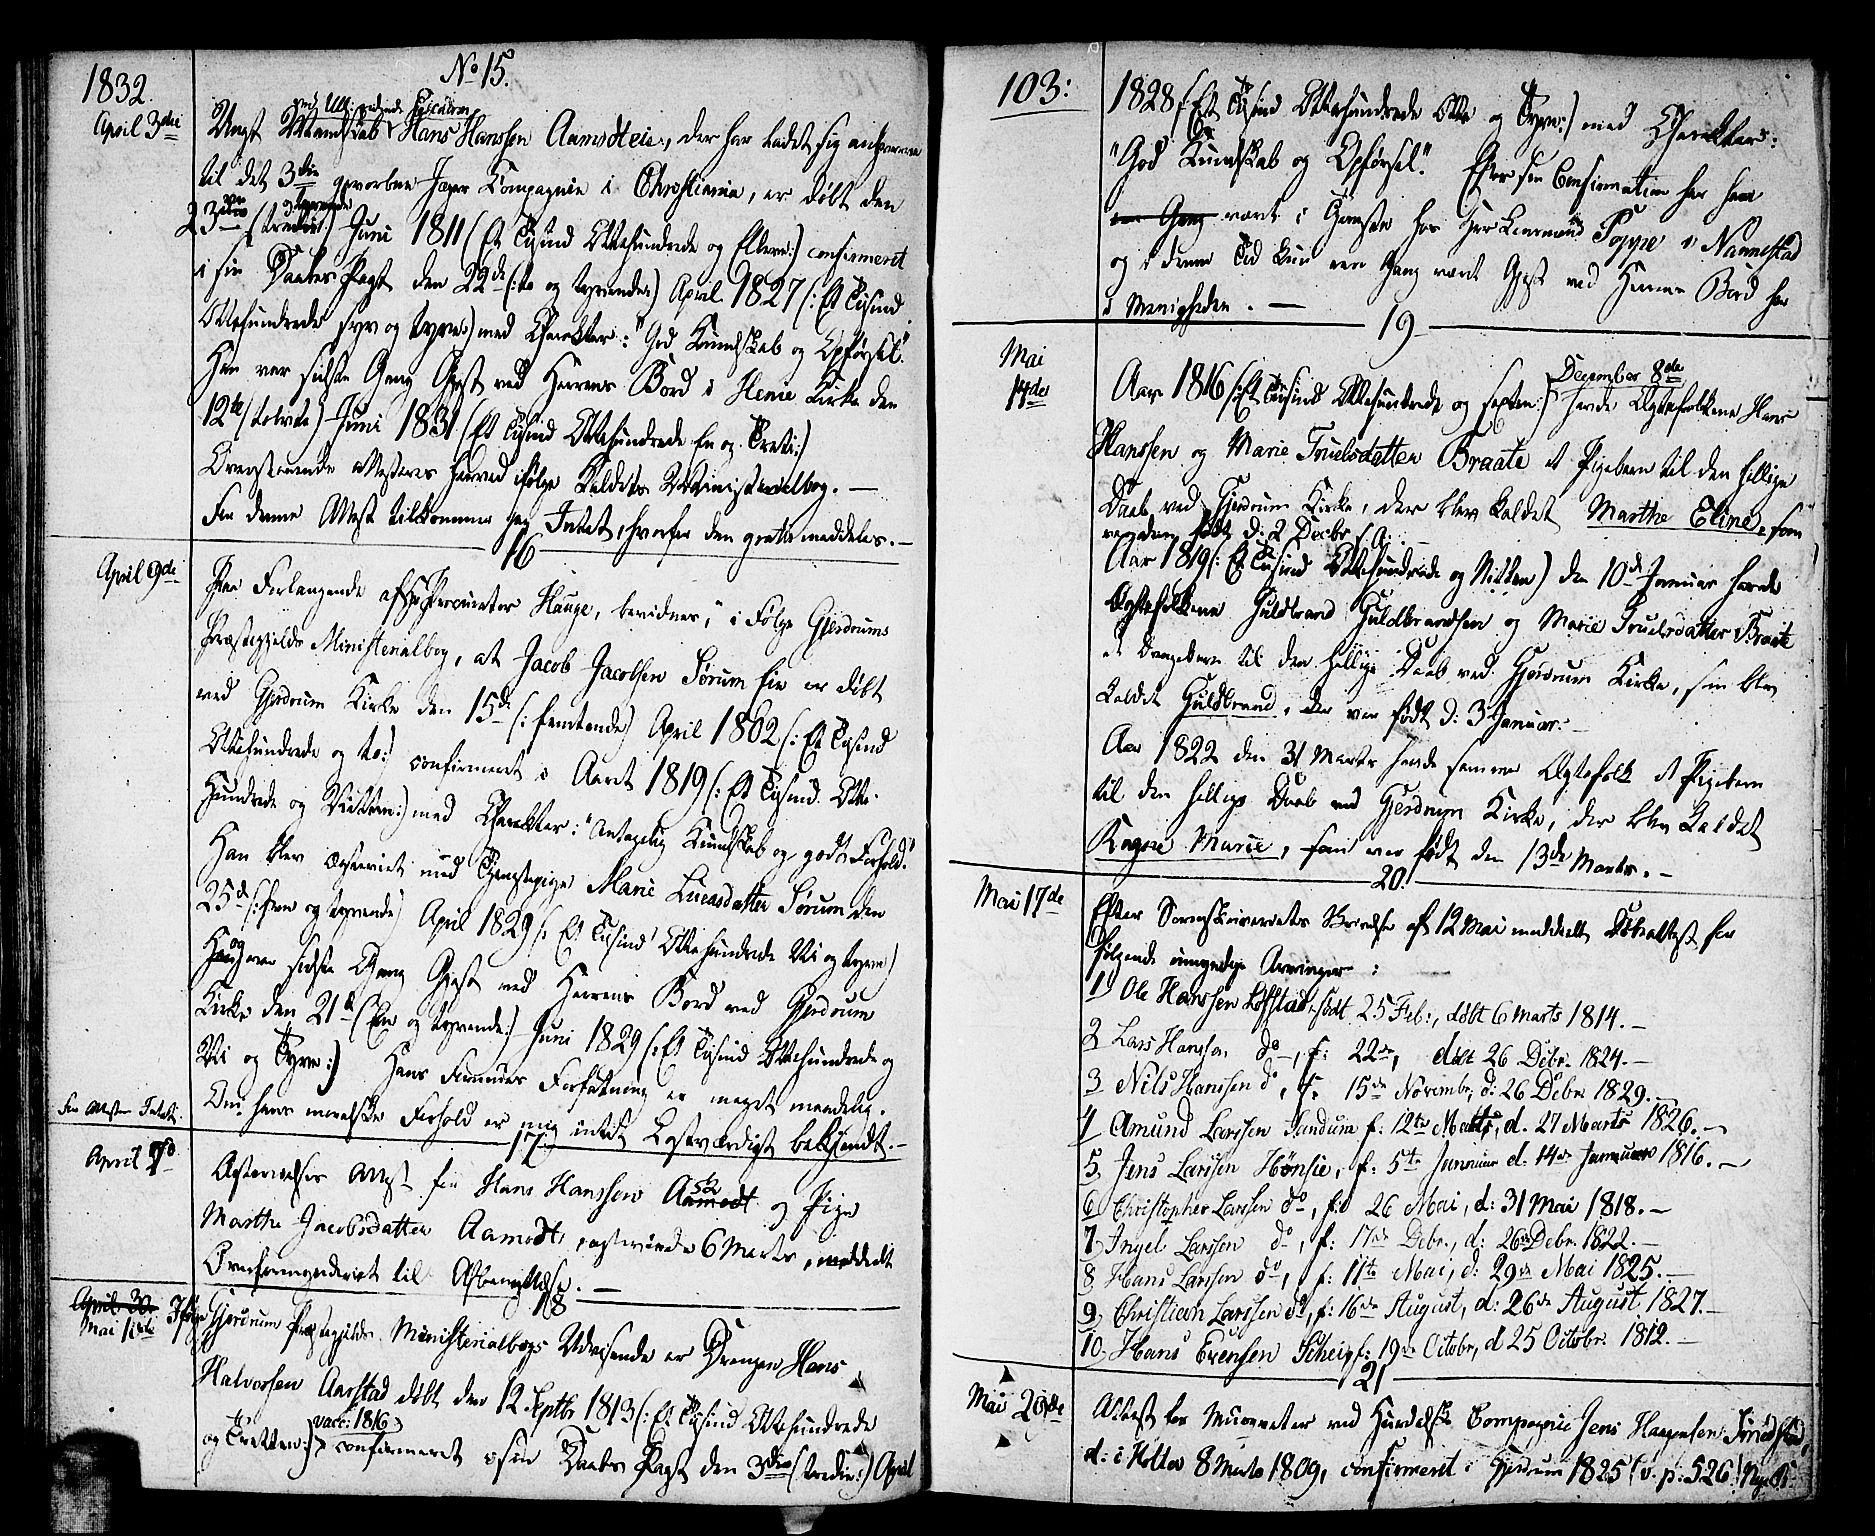 1832.
No 15.
April 3die
Ungt Mandskab Hans Hanssen Aamodteie, der har ladet sig anhverve
til det 3die gevorbne Jæger Compagnie i Christiania, er døbt den
23die Juni 1811 (Et Tusind Ottehundrede og Elleve:) confirmeret
i sin Daabes Pagt den 22de (:to og tyvende:) April 1827 (:Et Tusind
Ottehundrede syv og tyve:) med Charakter: "God Kundskab og Opførsel."
Han var sidste Gang Gjest ved Herrens Bord i Heni Kirke den
12te (tolvte) Juni 1831 (Et Tusind Ottehundrede En og Treti:)
Ovenstaaende attesteres herved ifølge Kaldets Ministerialbog. —
For denne Attest tilkommer jeg Intet, hvorfor den gratis meddeles. —
16
April 9de
Paa Forlangende af Hr Procurator Hauge, bevidnes, i Følge Gjerdrums
Præstegjelds Ministerialbog, at Jacob Jacobsen Sørum eie er døbt
ved Gjerdrum Kirke den 15de (:femtende) April 1802 (:Et Tusind
Ottehundrede og to:) confirmeret i Aaret 1819 (:Et Tusind Otte
Hundrede og Nitten:) med Charakter: "Antagelig Kundskab og godt Forhold."
Han blev copuleret med Tjenestepige Marie Lucasdatter Sørum den
25de (:fem og tyvende) April 1829 (:Et Tusind Ottehundrede Ni og tyve)
og var sidste Gang Gjest ved Herrens Bord ved Gjerdrum
Kirke den 21de (En og tyvende:) Juni 1829 (:Et Tusind Ottehundrede og
Ni og Tyve:) Hans Formues Forfatning er meget maadelig.
Om hans moralske Forhold er mig intet Lastværdigt bekjendt. —
For Attesten Intet.
17
April
Attest for Hans Hanssen Aamodt og Pige
Marthe Jacobsdatter Aamodt, 6 Marts, meddelt
Overformynderiet til Afbenyttelse. —
18
April 30
Mai 1ste
Ifølge Gjerdrum Præstegjelds Ministerialbogs Udvisende er Drengen Hans
Halvorsen Aarstad døbt den 12 Septbr 1813 (:Et Tusind Ottehundrede
og Tretten:) vacc: 1816 confirmeret i sin Daabes Pagt den 3die (tredie:) April
103:
1828 (Et Tusind Ottehundrede Otte og Tyve:) med Charakter:
"God Kundskab og Opførsel." Efter sin Confirmation har han
een Gang været i Tjeneste hos Poppe i Nannestad
og i denne Tid kun een Gang været Gjest ved Herrens Bord her
i Menigheden. —
19
Mai
14de
Aar 1816 (:Et Tusind Ottehundrede og sexten:) December 8de havde Ægtefolkene Hans
Hanssen og Marie Truelsdatter Braate et Pigebarn til den hellige
Daab ved Gjerdrum Kirke, der blev kaldet Marthe Eline, som
født d: 2 Decbr s. A: —
Aar 1819 (:Et Tusind Ottehundrede og Nitten) den 10de Januar havde
Ægtefolkene Guldbrand Guldbrandsen og Marie Truelsdatter Braate
et Drengebarn til den hellige Daab ved Gjerdrum Kirke, som blev
kaldet Guldbrand, der var født d: 3 Januar. —
Aar 1822 den 31 Marts havde samme Ægtefolk et Pigebarn
til den hellige Daab ved Gjerdrum Kirke, der blev kaldet
Kagne Marie, som var født den 13de Marts. —
20
Mai 17de
Efter Sorenskriverens Skrivelse af 12 Mai meddeelt Døbeattest for
følgende umyndige Arvinger:
1) Ole Hanssen Løfstad, født 25 Feb:, døbt 6 Marts 1814. —
2 Lars Hanssen do —, f: 22de, døbt 26 Debr. 1824. —
3 Nils Hanssen do, f. 15de Novembr, d: 26 Debr 1829. —
4 Amund Larssen Sandum f: 12te Marts, d. 27 Marts 1826. —
5. Jens Larssen Hønsie, f: 5te Januar d: 14de Januar 1816. —
6 Christopher Larssen do, f: 26 Mai, d: 31 Mai 1818. —
7, Ingel Larssen do, f: 17de Debr., d: 26de Debr. 1822. —
8 Hans Larssen do, f: 11te Mai, d: 29de Mai 1825. —
9, Christian Larssen do, f: 16de August, d: 26de August 1827. —
10, Hans Evensen Scheie f: 19de Octobr, d 25 Octobr. 1812. —
21
Mai 20de
Attest for Musqueter ved Hurdalske Compagnie Jens Haagensen
d: i Holter 8 Marts 1809, confirmeret i Gjerdrum 1825 (v. p: 526.